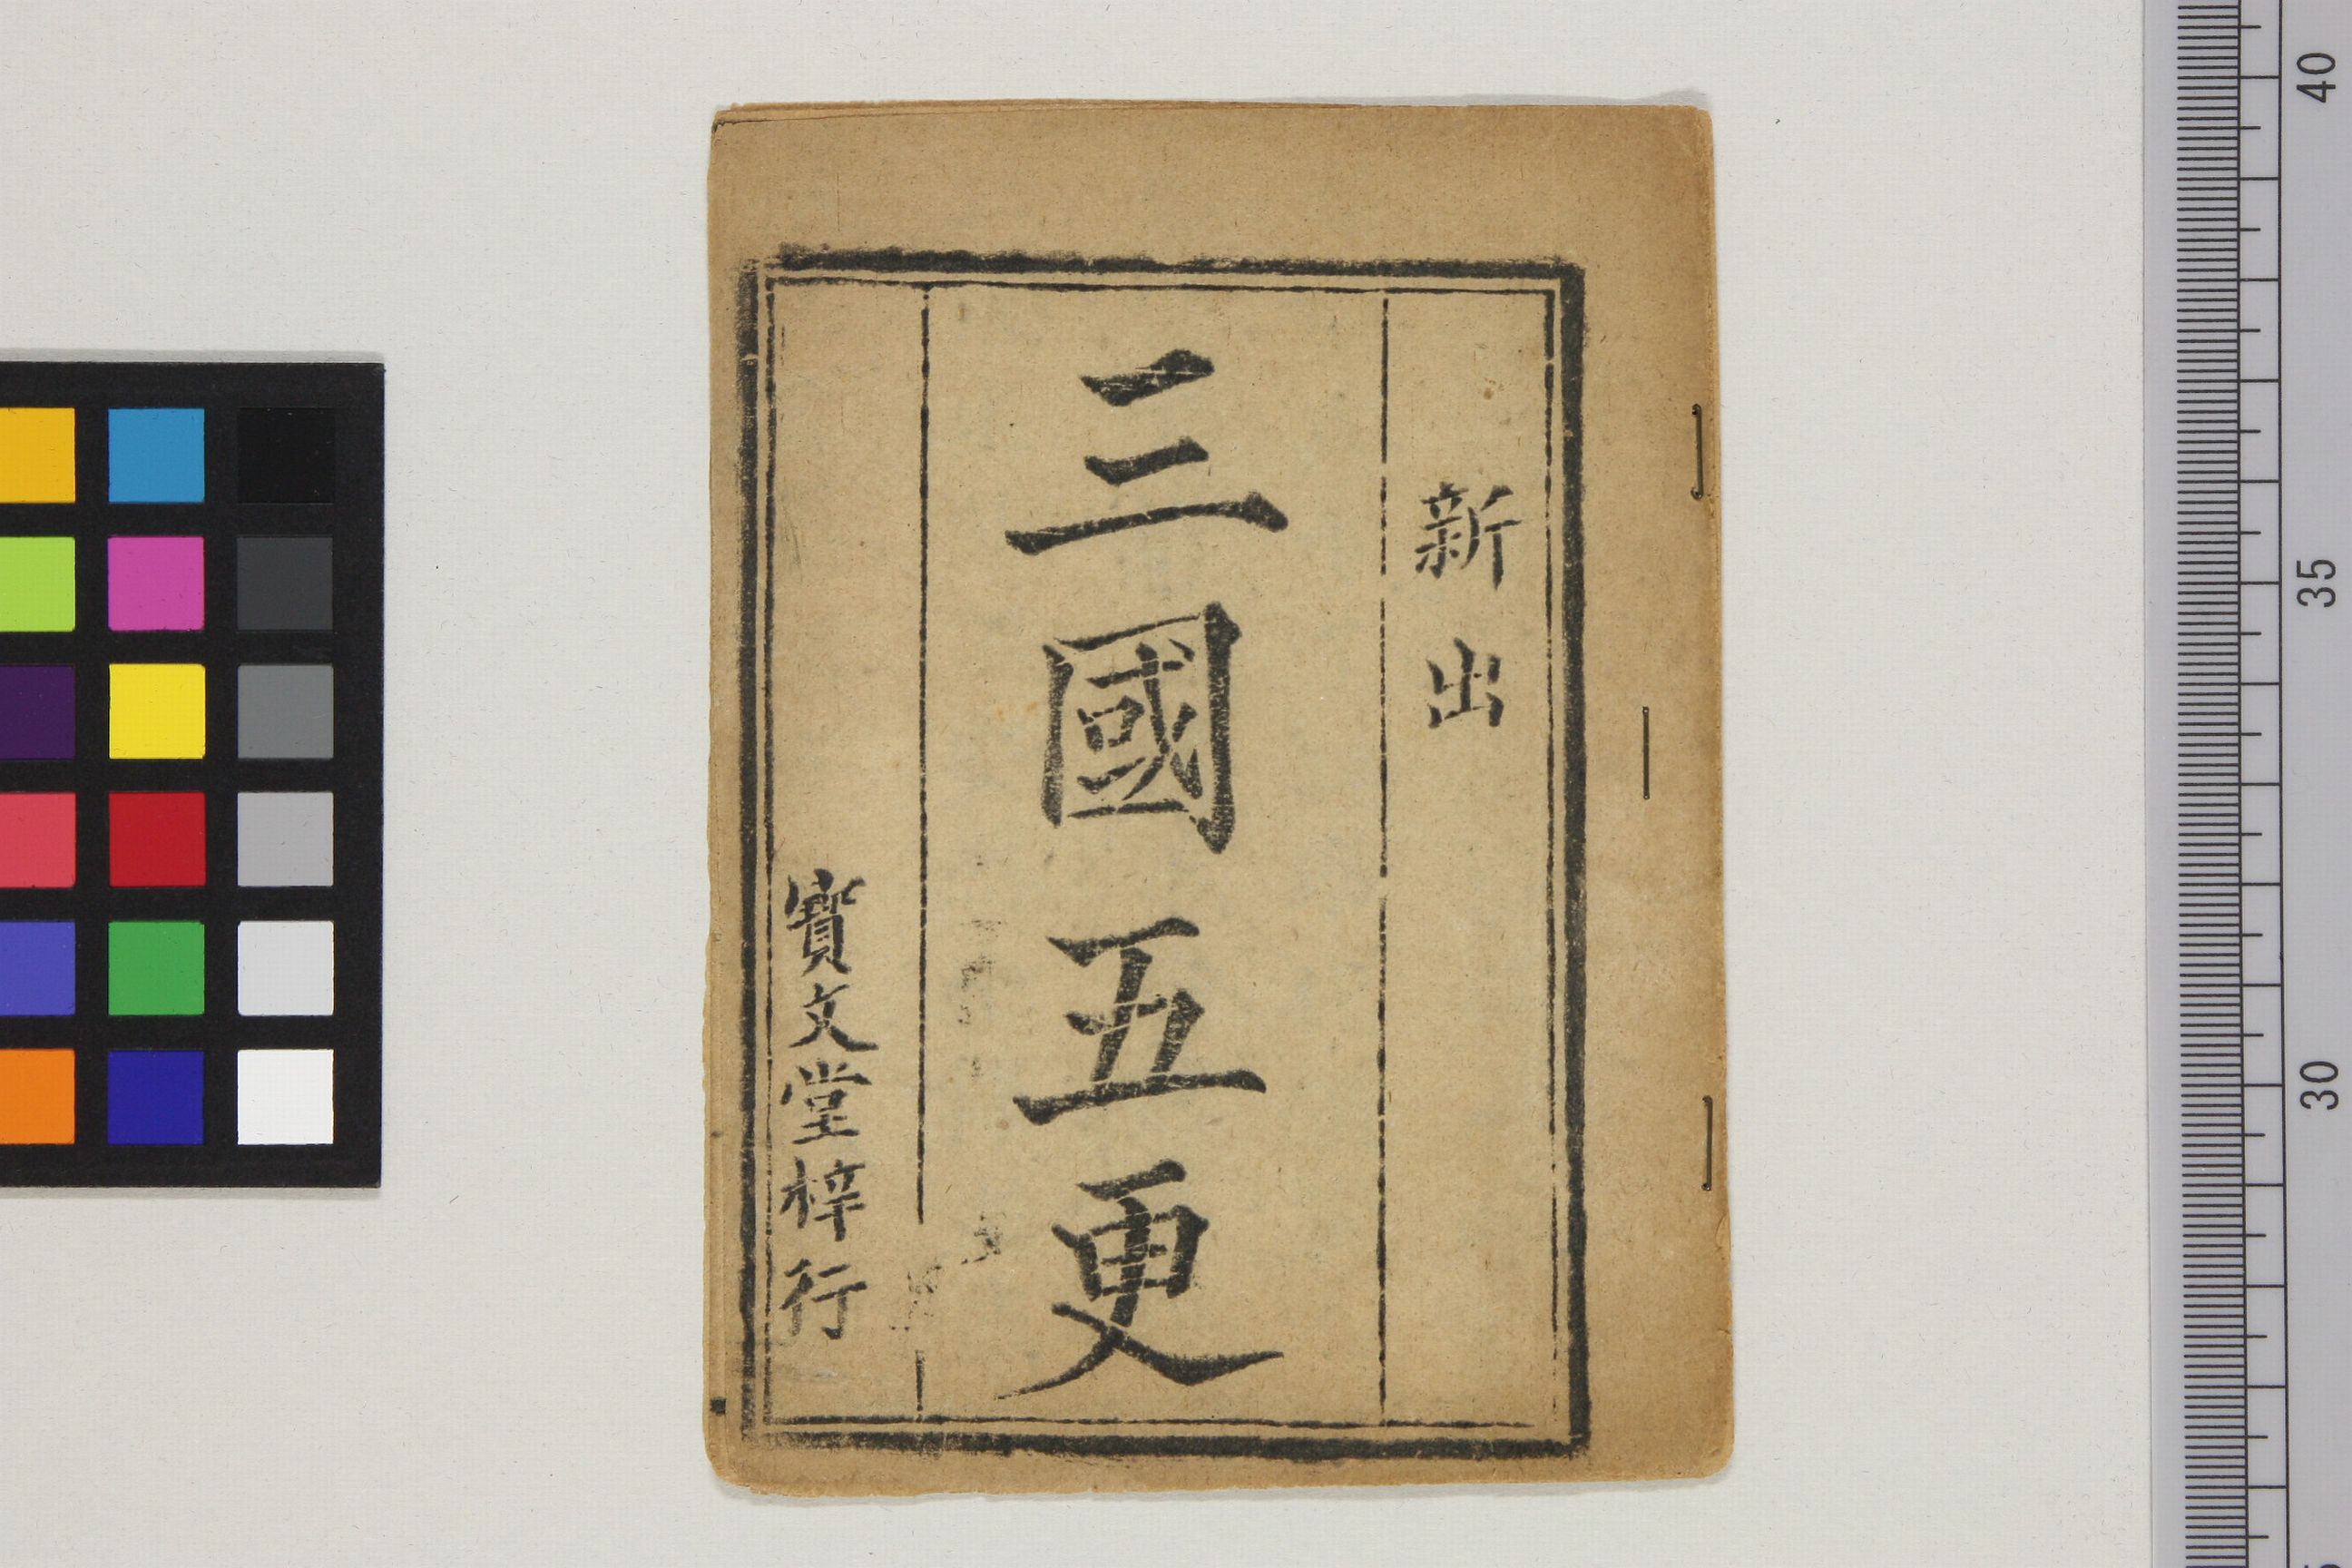 新出
三國五更
寶文堂梓行
40
35
30